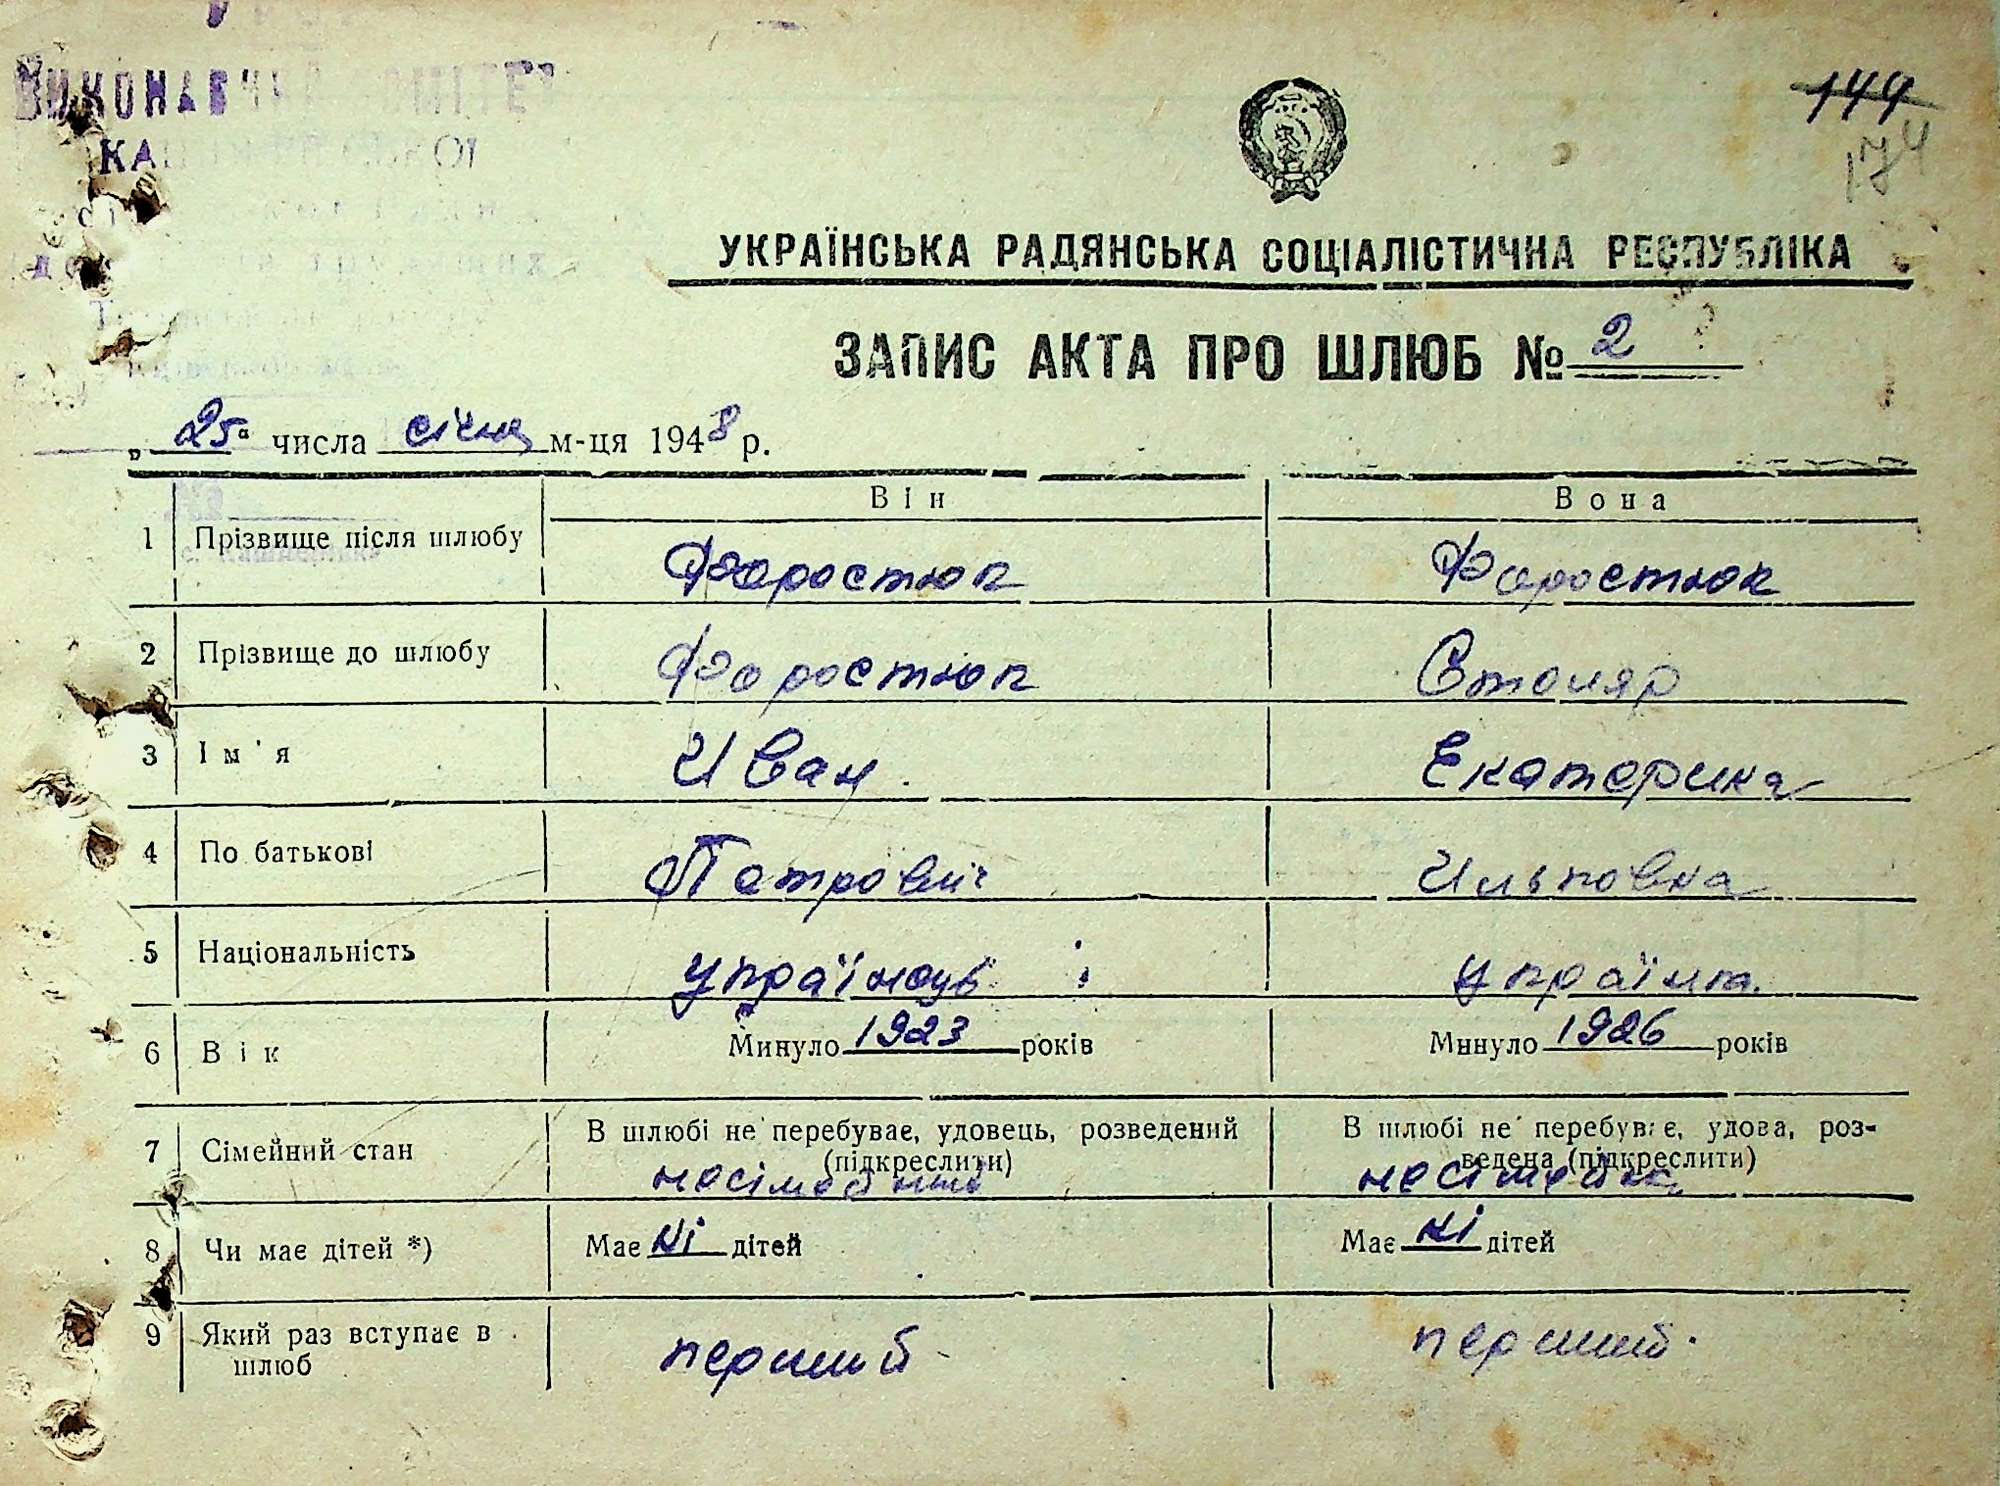 ВИКОНАВЧИЙ КОМІТЕТ
149
174
УКРАЇНСЬКА РАДЯНСЬКА СОЦІАЛІСТИЧНА РЕСПУБЛІКА
ЗАПИС АКТА ПРО ШЛЮБ № 2
„ 25 " числа січня м-ця 1948 р.
Він Вона
1 Прізвище після шлюбу Форостюк Форостюк
2 Прізвище до шлюбу Форостюк Столяр
3 Ім'я Иван Екатерина
4 По батькові Петровіч Ильковна
5 Національність українець українка.
6 Вік Минуло 1923 років Минуло 1926 років
7 Сімейний стан В шлюбі не перебуває, удовець, розведений (підкреслити) В шлюбі не перебуває, удова, роз-
ведена (підкреслити)
несімейний несімейна
8 Чи має дітей *) Має ні дітей Має ні дітей
9 Який раз вступає в шлюб перший перший.